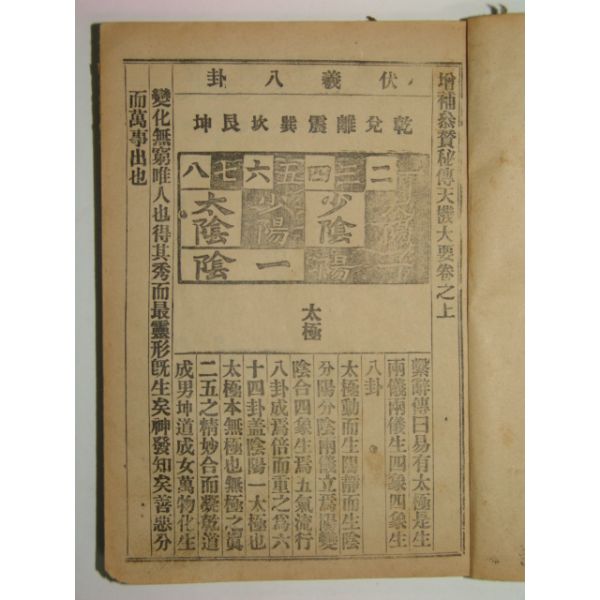 增補叅贊秘傳天機大要卷之上
伏羲八卦
乾兌離震巽坎艮坤
二三四五六七八
少陰少陽太陰
陽一陰
太極
繫辭傳曰易有太極是生
兩儀兩儀生四象四象生
八卦
太極動而生陽靜而生陰
分陽分陰兩儀立焉陽變
陰合四象生焉五氣流行
八卦成焉倍而重之爲六
十四卦盖陰陽一太極也
太極本無極也無極之眞
二五之精妙合而凝乾道
成男坤道成女萬物化生
變化無窮唯人也得其秀而最靈形旣生矣神發知矣善惡分
而萬事出也